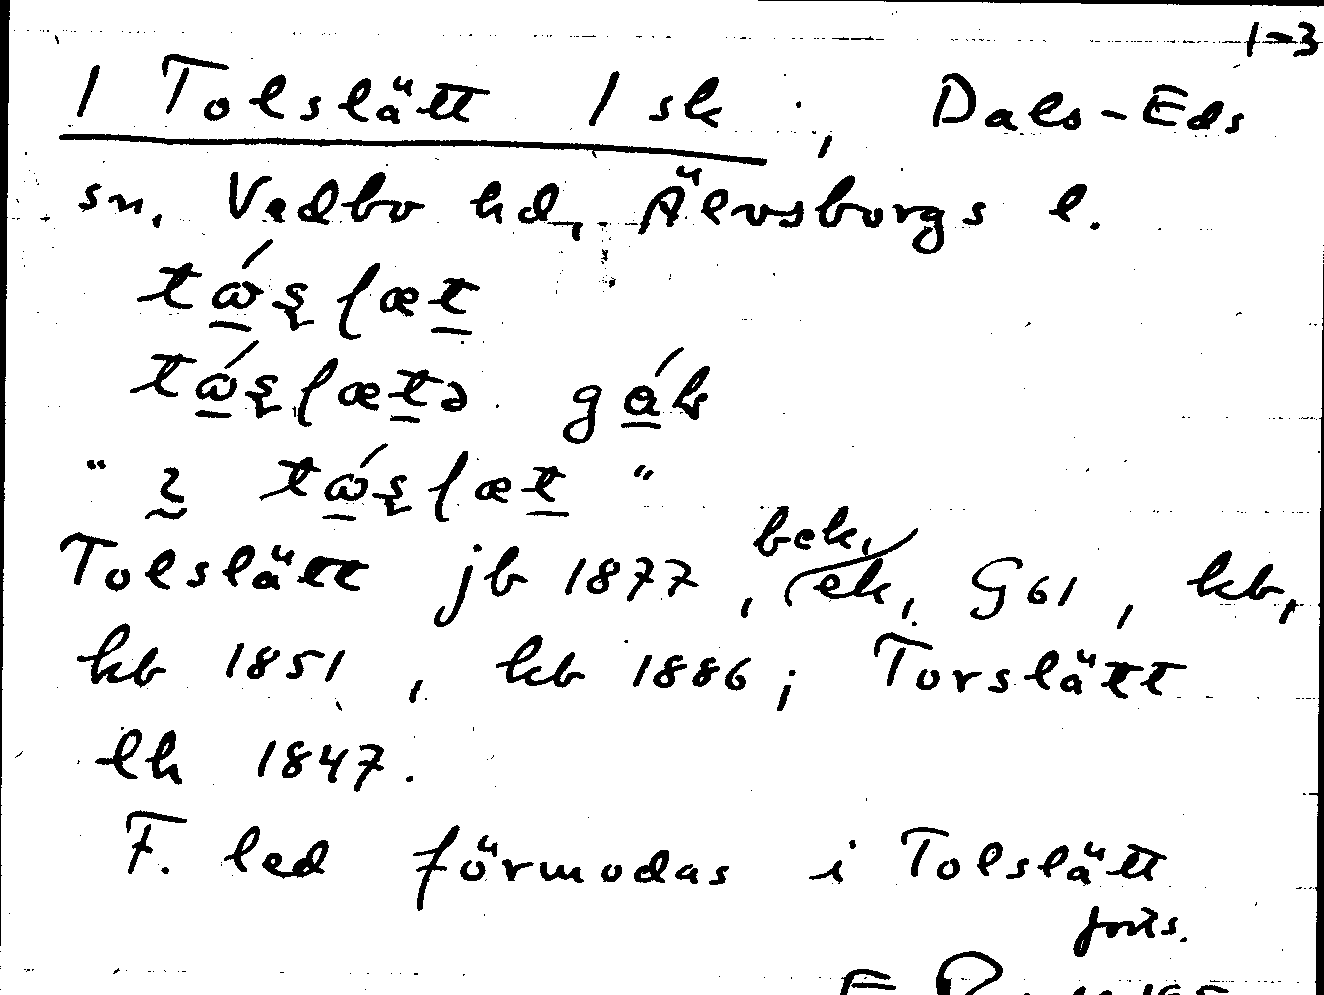 1-3
1 Tolslätt 1 sk., Dals-Eds
sn, Vedbo hd, Älvsborgs l.
tώs̨ʃæt
tώs̨ʃætə gáb
" 2 tώs̨ʃæt "
bek.
Tolslätt jb 1877, ek, G61, kb,
kb 1851, kb 1886; Torslätt
lh 1847.
F. led förmodas i Tolslätt
forts.